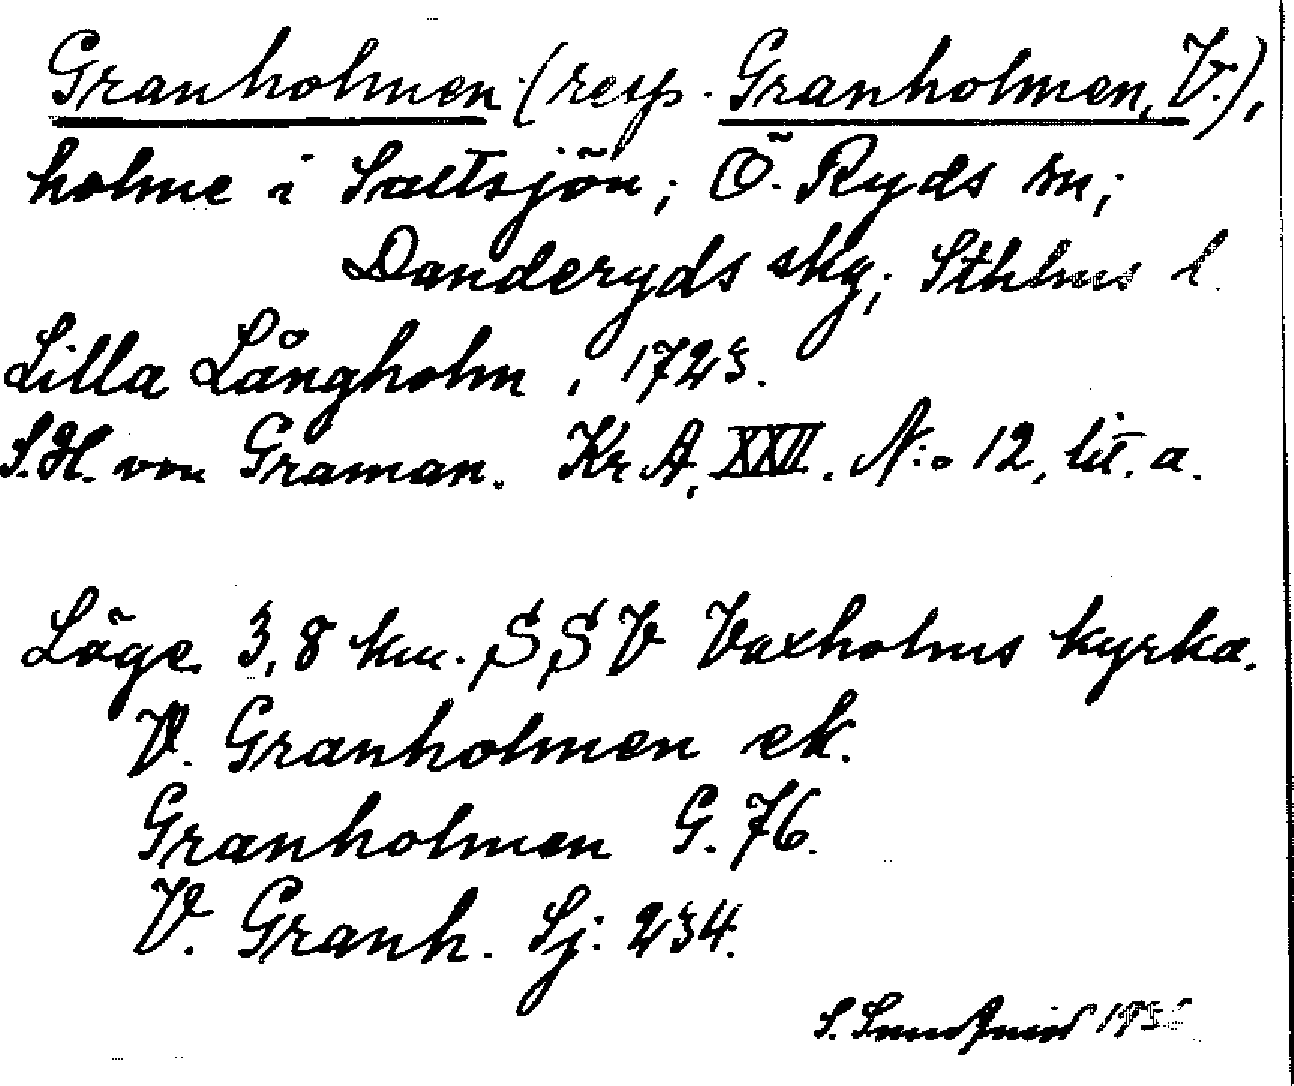 Granholmen (resp. Granholmen, V.),
holme i Saltsjön; Ö. Ryds sn;
Danderyds skg; Sthlms l.
Lilla Långholm, 1723.
S.H. von Graman. Kr A, XXII. N:o 12, lit. a.
Läge 3,8 km. SSV Vaxholms kyrka.
V. Granholmen ek.
Granholmen G. 76.
V. Granh. Sj: 234.
S.